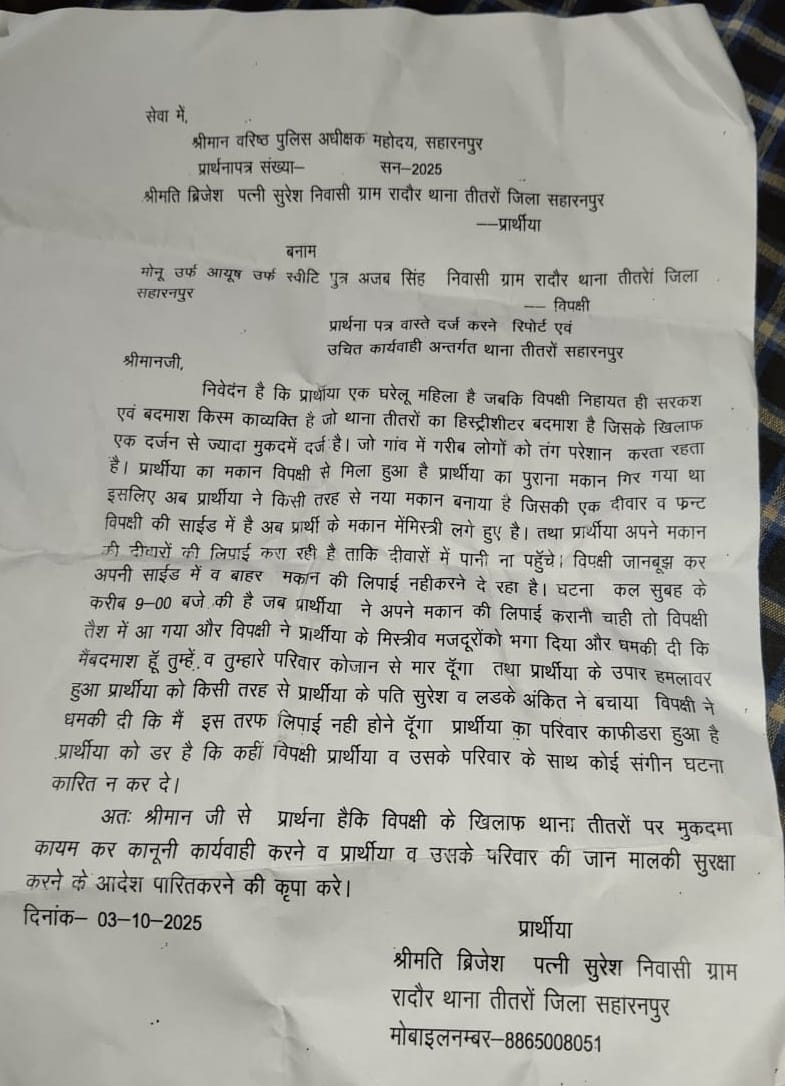 सेवा में,
श्रीमान वरिष्ठ पुलिस अधीक्षक महोदय, सहारनपुर
प्रार्थनापत्र संख्या– सन–2025
श्रीमति ब्रिजेश पत्नी सुरेश निवासी ग्राम रादौर थाना तीतरों जिला सहारनपुर
––प्रार्थीया
बनाम
मोनू उर्फ आयूष उर्फ स्वीटि पुत्र अजब सिंह निवासी ग्राम रादौर थाना तीतरों जिला
सहारनपुर
–– विपक्षी
प्रार्थना पत्र वास्ते दर्ज करने रिपोर्ट एवं
उचित कार्यवाही अन्तर्गत थाना तीतरों सहारनपुर
श्रीमानजी,
निवेदन है कि प्रार्थीया एक घरेलू महिला है जबकि विपक्षी निहायत ही सरकश
एवं बदमाश किस्म काव्यक्ति है जो थाना तीतरों का हिस्ट्रीशीटर बदमाश है जिसके खिलाफ
एक दर्जन से ज्यादा मुकदमें दर्ज है। जो गांव में गरीब लोगों को तंग परेशान करता रहता
है। प्रार्थीया का मकान विपक्षी से मिला हुआ है प्रार्थीया का पुराना मकान गिर गया था
इसलिए अब प्रार्थीया ने किसी तरह से नया मकान बनाया है जिसकी एक दीवार व फ्रन्ट
विपक्षी की साईड में है अब प्रार्थी के मकान मेंमिस्त्री लगे हुए है। तथा प्रार्थीया अपने मकान
की दीवारों की लिपाई करा रही है ताकि दीवारों में पानी ना पहुँचे। विपक्षी जानबूझ कर
अपनी साईड में व बाहर मकान की लिपाई नहीकरने दे रहा है। घटना कल सुबह के
करीब 9–00 बजे की है जब प्रार्थीया ने अपने मकान की लिपाई करानी चाही तो विपक्षी
तैश में आ गया और विपक्षी ने प्रार्थीया के मिस्त्रीव मजदूरोंको भगा दिया और धमकी दी कि
मैंबदमाश हूँ तुम्हें व तुम्हारे परिवार कोजान से मार दूँगा तथा प्रार्थीया के उपार हमलावर
हुआ प्रार्थीया को किसी तरह से प्रार्थीया के पति सुरेश व लडके अंकित ने बचाया विपक्षी ने
धमकी दी कि मैं इस तरफ लिपाई नही होने दूँगा प्रार्थीया का परिवार काफीडरा हुआ है
प्रार्थीया को डर है कि कहीं विपक्षी प्रार्थीया व उसके परिवार के साथ कोई संगीन घटना
कारित न कर दे।
अतः श्रीमान जी से प्रार्थना हैकि विपक्षी के खिलाफ थाना तीतरों पर मुकदमा
कायम कर कानूनी कार्यवाही करने व प्रार्थीया व उसके परिवार की जान मालकी सुरक्षा
करने के आदेश पारितकरने की कृपा करे।
दिनांक– 03–10–2025
प्रार्थीया
श्रीमति ब्रिजेश पत्नी सुरेश निवासी ग्राम
रादौर थाना तीतरों जिला सहारनपुर
मोबाइलनम्बर–8865008051